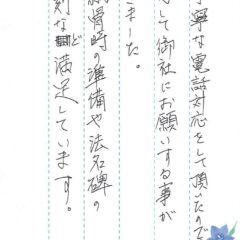 寧な電話対応をして頂いたので
して御社にお願いする事が
きました。
納骨時の準備や法名碑の
刻など満足しています。